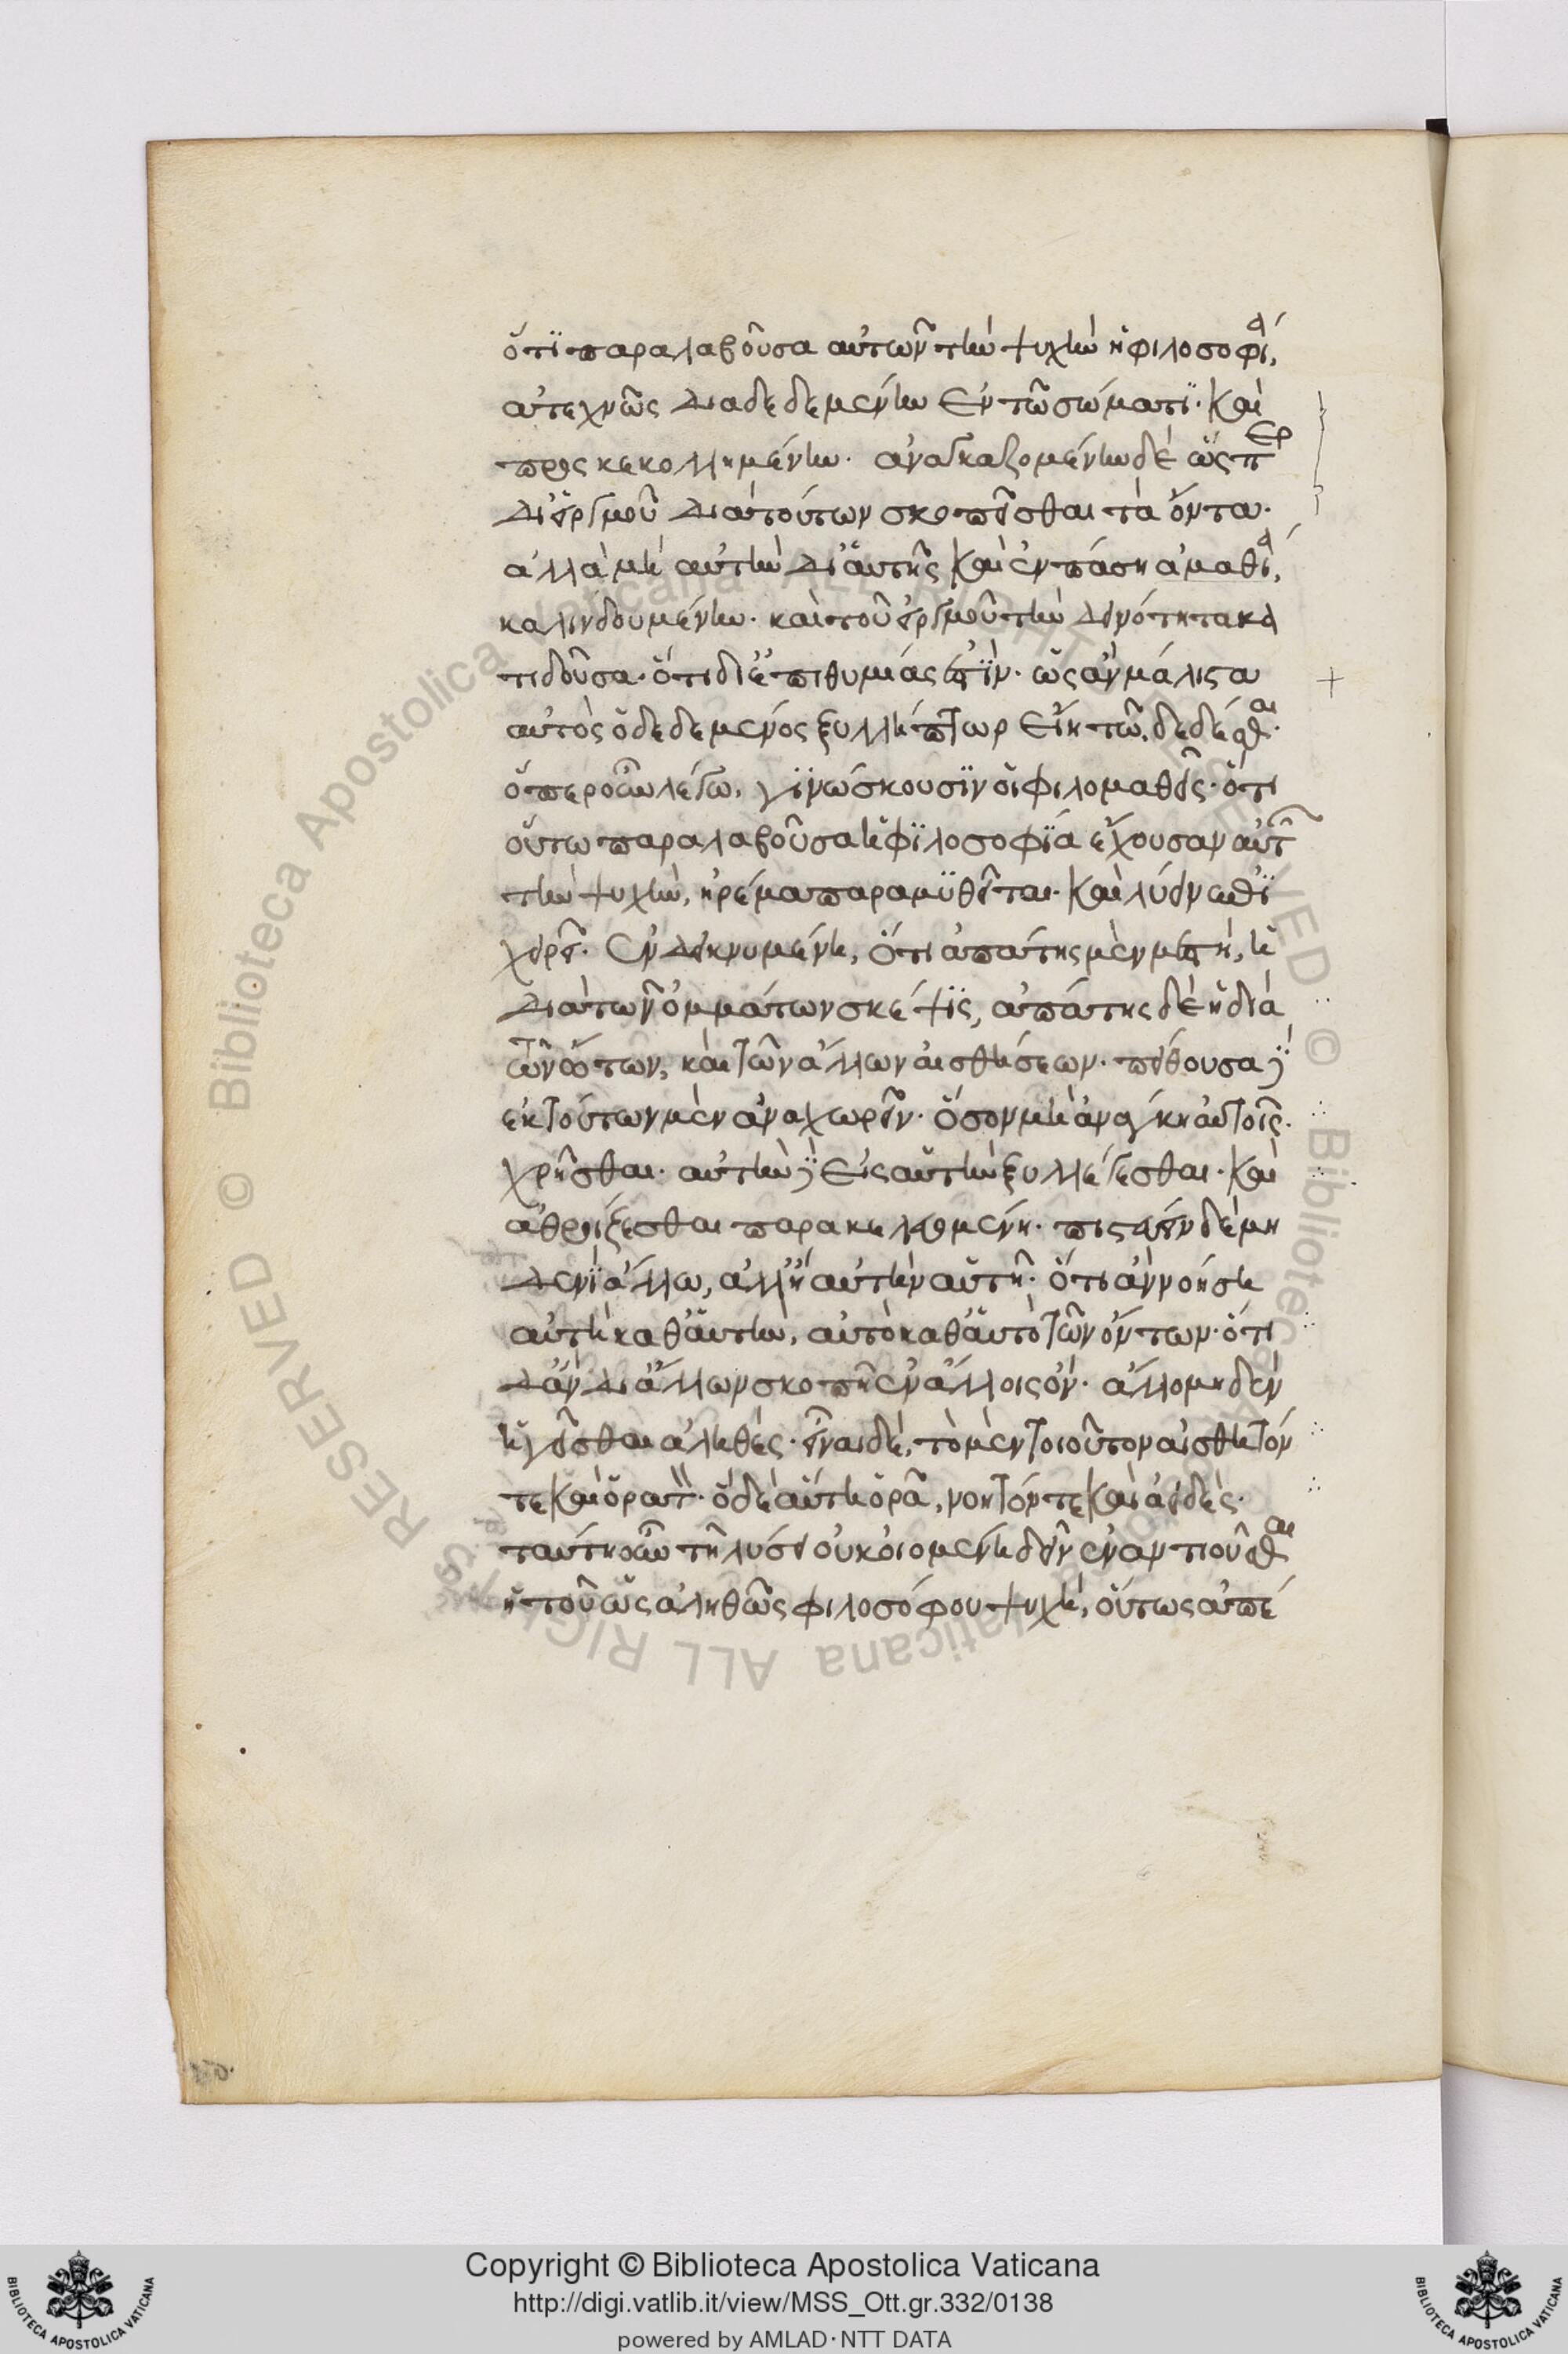 ὅτι παραλαβοῦσα αὐτῶν τὴν ψυχὴν ἡ φιλοσοφία,
ἀτεχνῶς διαδεδεμένην ἐν τῶ σώματι· καὶ
προσκεκολλημένην· ἀναγκαζομένην δὲ ὥσπερ
δι' εἱργμοῦ διὰ τούτων σκοπεῖσθαι τὰ ὄντα·
ἀλλὰ μὴ αὐτὴν δι' αὑτῆς καὶ ἐν πάση ἀμαθία,
καλινδουμένην· καὶ τοῦ εἱργμοῦ τὴν δεινότητα κα
τιδοῦσα· ὅτι δι' ἐπιθυμίας ἐστὶν· ὡς ἂν μάλιστα
αὐτὸς ὁ δεδεμένος ξυλλήπτωρ εἴη τῶ, δεδέσθαι·
ὅπερ οὖν λέγω, γινώσκουσιν οἱ φιλομαθεῖς· ὅτι
οὕτω παραλαβοῦσα ἡ φιλοσοφία ἔχουσαν αὐτῶν
τὴν ψυχὴν, ἠρέμα παραμυθεῖται· καὶ λύειν ἐπι
χειρεῖ· ἐνδεικνυμένη, ὅτι ἀπάτης μὲν μεστὴ, ἡ
διὰ τῶν ὀμμάτων σκέψις, ἀπάτης δὲ ἡ διὰ
τῶν ὤτων, καὶ τῶν ἄλλων αἰσθήσεων· πείθουσα δὲ
ἐκ τούτων μὲν ἀναχωρεῖν· ὅσον μὴ ἀνάγκη αὐτοῖς·
χρῆσθαι· αὐτὴν δὲ εἰς αὑτὴν ξυλλέγεσθαι· καὶ
ἀθροίζεσθαι παρακελευομένη· πιστεύειν δὲ μη
δενὶ ἄλλω, ἀλλ' ἢ αὐτὴν αὑτῆ· ὅτι ἂν νοήση
αὐτὴ καθ' αὑτὴν, αὐτὸ καθ' αὑτὸ τῶν ὄντων· ὅτι
δ' ἂν δι' ἄλλων σκοπῆ ἐν ἄλλοις ὂν· ἄλλο μηδὲν
ἡγεῖσθαι ἀληθὲς· εἶναι δὲ, τὸ μὲν τοιοῦτον αἰσθητόν
τε καὶ ὁρατὸν· ὃ δὲ αὐτὴ ὁρᾶ, νοητόν τε καὶ ἀειδὲς·
ταύτη οὖν τῆ λύσει οὐκ οἰομένη δεῖν ἐναντιοῦσθαι
ἡ τοῦ ὡς ἀληθῶς φιλοσόφου ψυχὴ, οὕτως ἀπέ
Copyright © Biblioteca Apostolica Vaticana
http://digi.vatlib.it/view/MSS_Ott.gr.332/0138
powered by AMLAD·NTT DATA